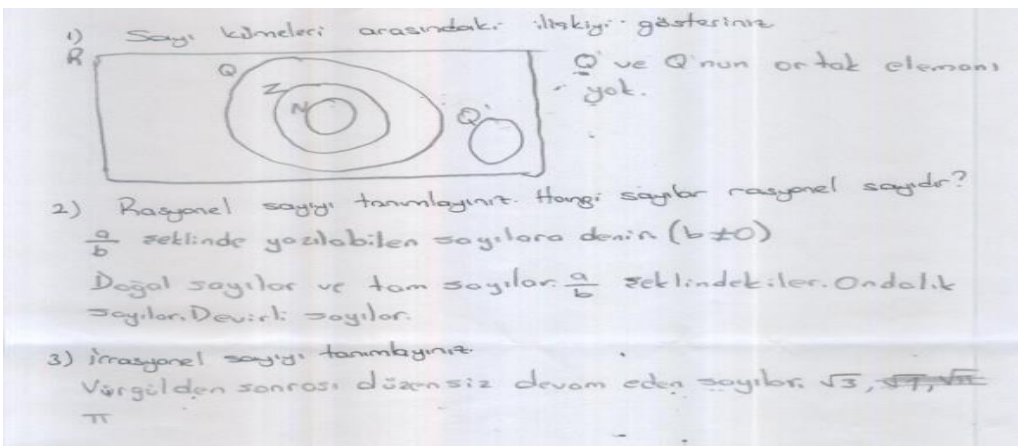 1) Sayı kümeleri arasındaki ilişkiyi gösteriniz
R
Q
Z
N
Q'
Q' ve Q'nun ortak elemanı
yok.
2) Rasyonel sayıyı tanımlayınız. Hangi sayılar rasyonel sayıdır?
a/b şeklinde yazılabilen sayılara denir. (b≠0)
Doğal sayılar ve tam sayılar. a/b şeklindekiler. Ondalık
sayılar. Devirli sayılar.
3) İrrasyonel sayıyı tanımlayınız.
Virgülden sonrası düzensiz devam eden sayılar. √3,
π